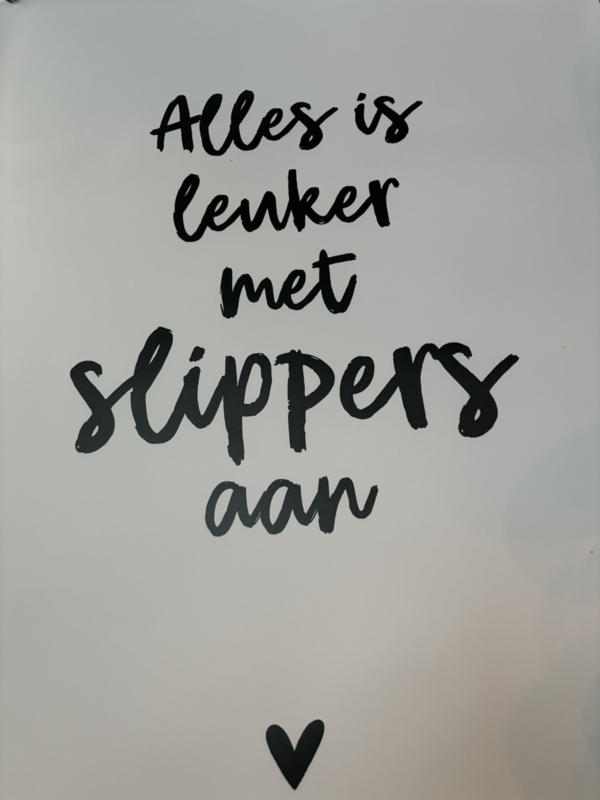 Alles is
leuker
met
slippers
aan